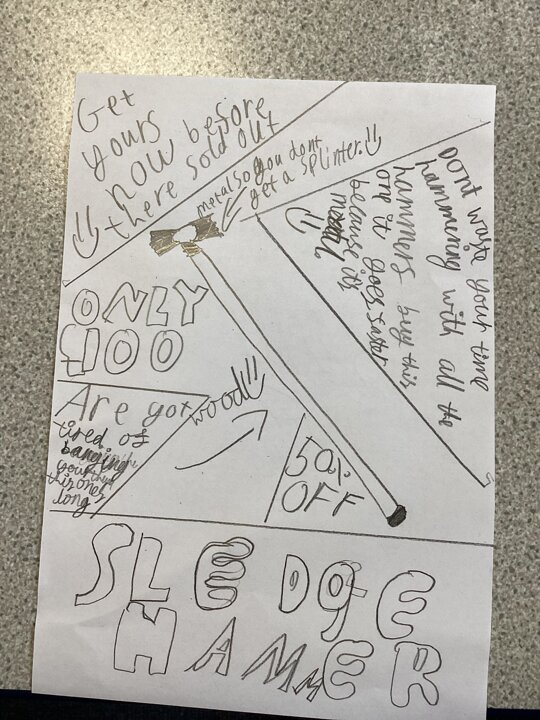 Get
yours
now before
there sold out
metal so you dont
get a splinter.
Dont wast your time
hammering with all the
hammers buy this
one it goes faster
because it's
metal
ONLY
£100
Are got
tired of
banging
your
this ones
long
wood
50%
OFF
SLEDGE
HAMMER